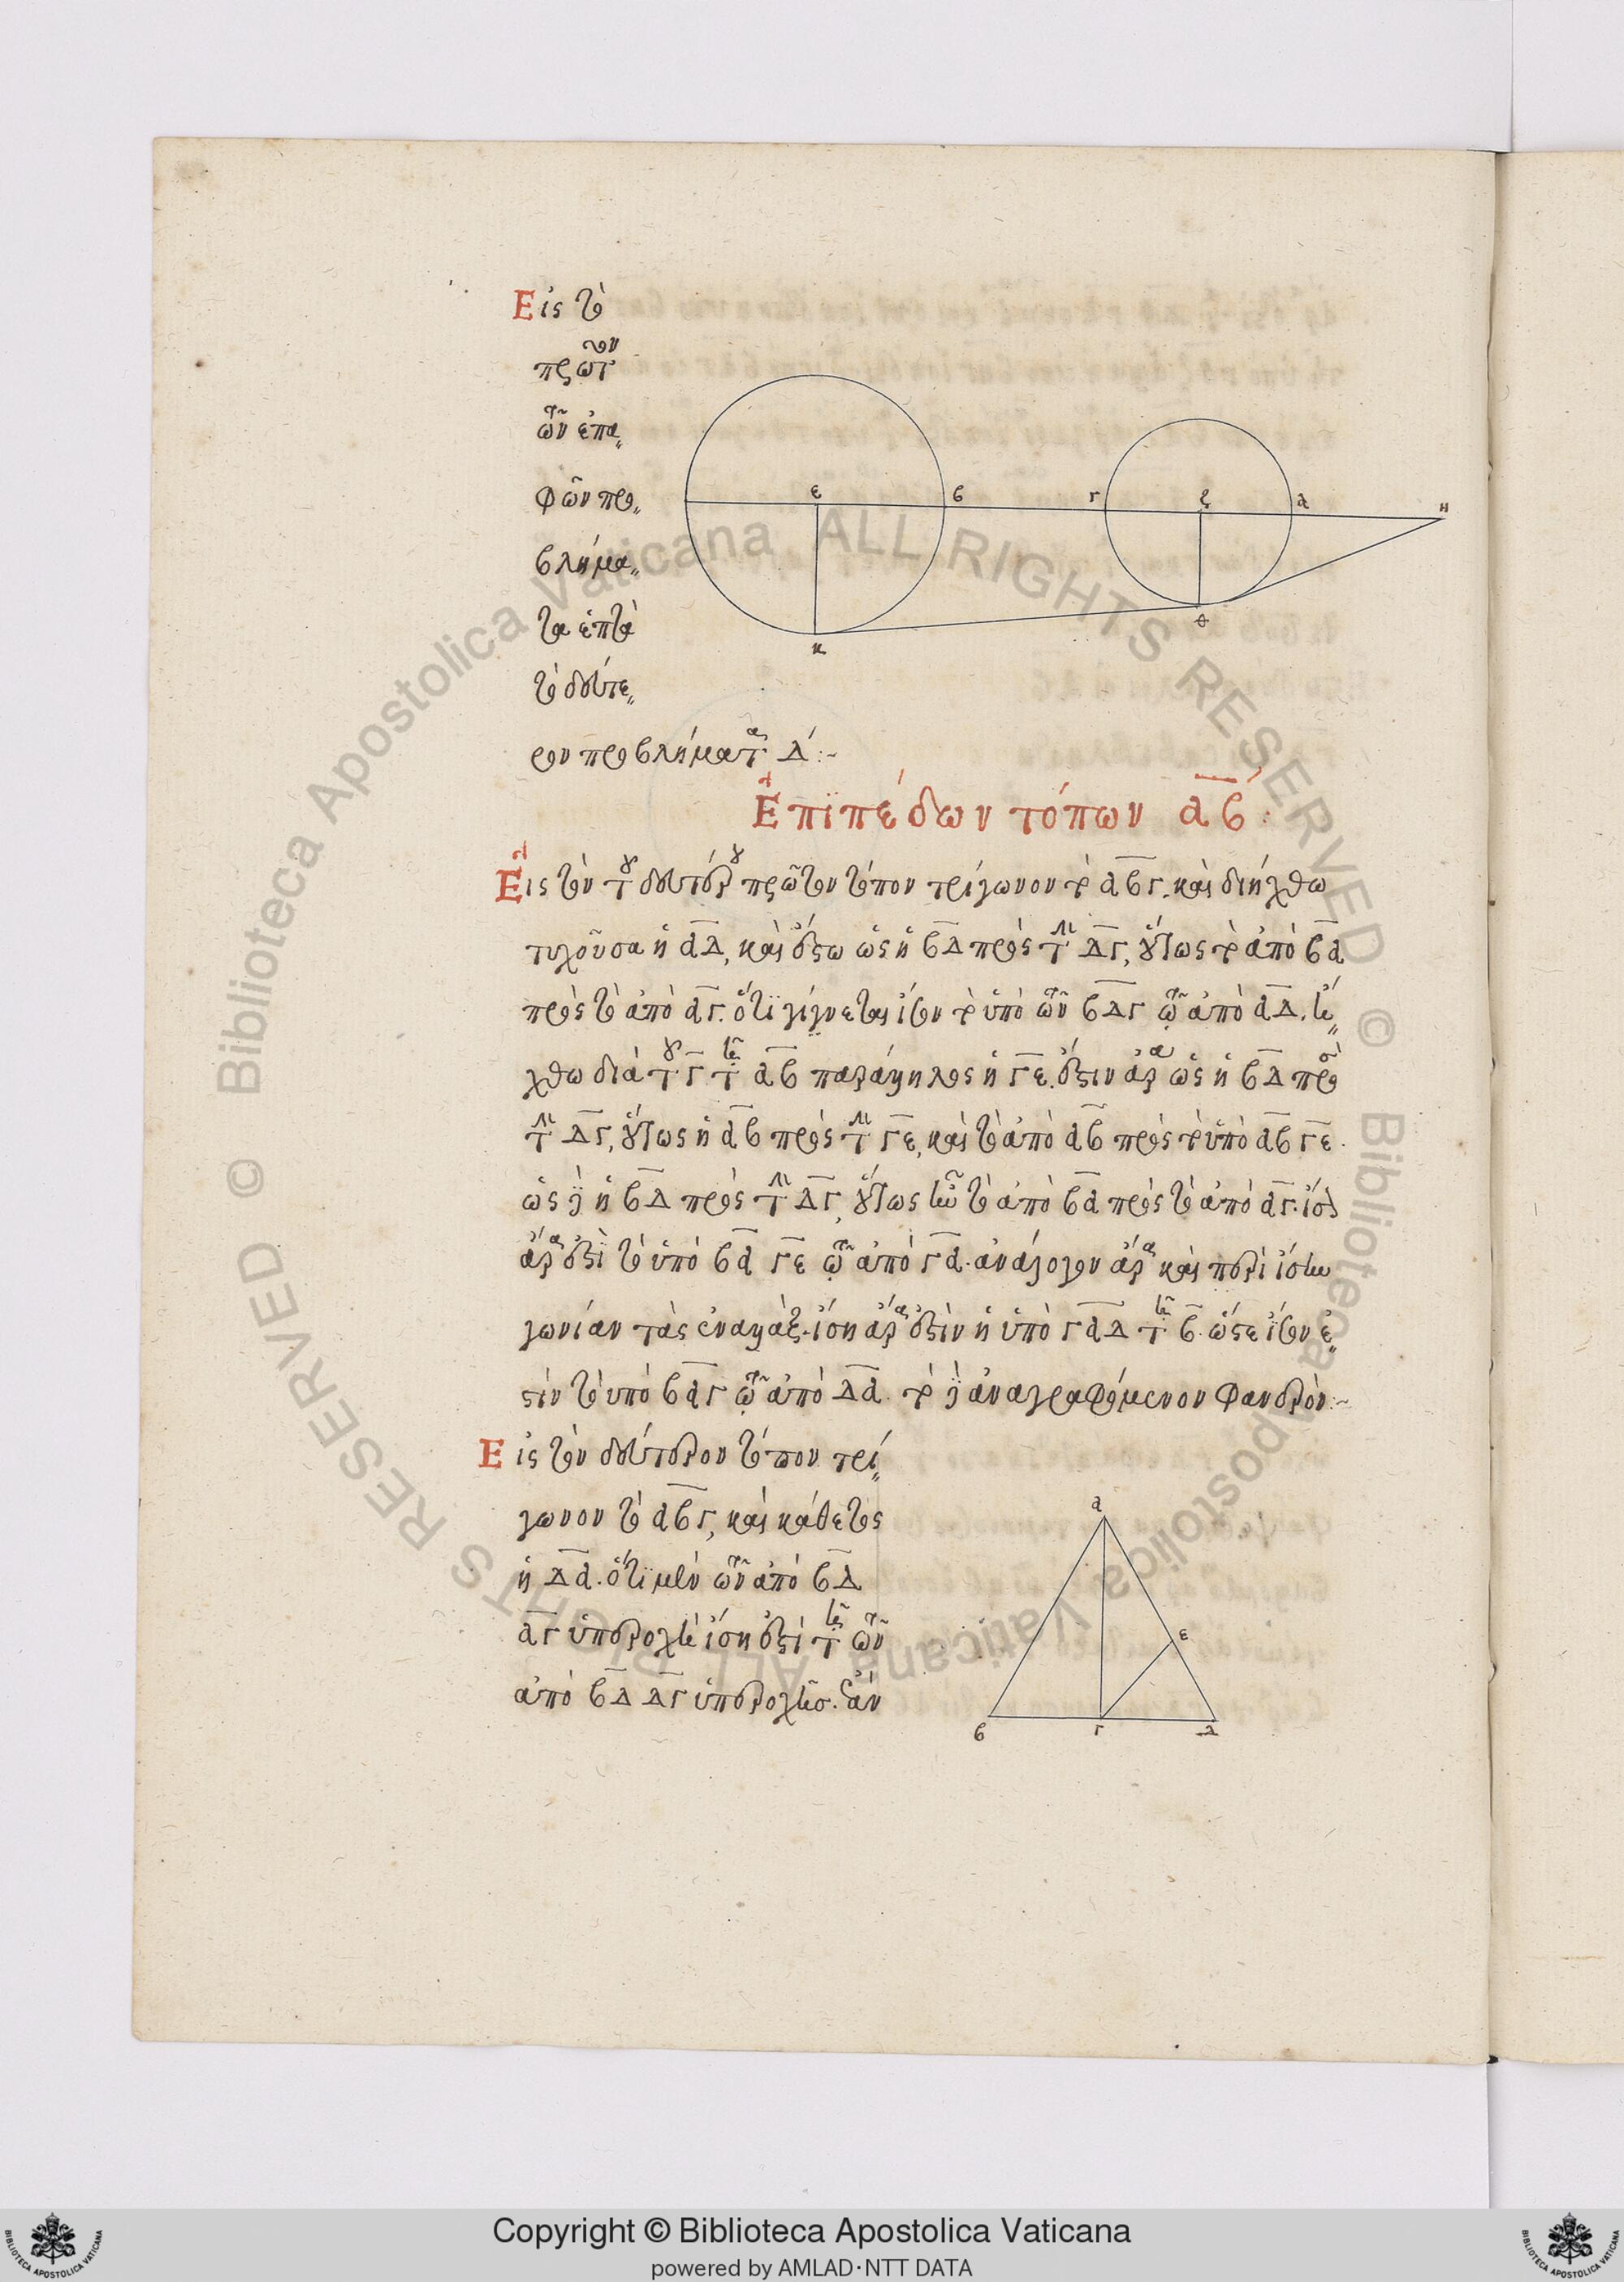 Εἰς τὸ
πρῶτον
τῶν ἐπα
φῶν προ
βλήμα
τα ἑπτὰ
τὸ δεύτε
ρον προβλήματα Δ :~
ε β γ ζ α η
κ θ
Ἐπιπέδων τόπων α β :
Εἰς τὸν τοῦ δευτέρου πρῶτον τόπον τρίγωνον τὸ αβγ, καὶ διήχθω
τυχοῦσα ἡ αΔ, καὶ ἔστω ὡς ἡ βΔ πρὸς τὴν Δγ, οὕτως τὸ ἀπὸ βα
πρὸς τὸ ἀπὸ αγ. ὅτι γίγνεται ἴσον τὸ ὑπὸ τῶν βΔγ τῷ ἀπὸ αΔ. ἤ
χθω διὰ τοῦ γ τῇ αβ παράλληλος ἡ γε. ἔστιν ἄρα ὡς ἡ βΔ πρὸς
τὴν Δγ, οὕτως ἡ αβ πρὸς τὴν γε, καὶ τὸ ἀπὸ αβ πρὸς τὸ ὑπὸ αβ γε.
ὡς δὲ ἡ βΔ πρὸς τὴν Δγ, οὕτως ἦν τὸ ἀπὸ βα πρὸς τὸ ἀπὸ αγ. ἴσον
ἄρα ἐστὶ τὸ ὑπὸ βα γε τῷ ἀπὸ γα. ἀνάλογον ἄρα καὶ περὶ ἴσην
γωνίαν τὰς ἐναλλάξ. ἴση ἄρα ἐστὶν ἡ ὑπὸ γαΔ τῇ β. ὥστε ἴσον ἐ
στὶν τὸ ὑπὸ βαγ τῷ ἀπὸ Δα. τὸ δὲ ἀναγραφόμενον φανερόν :~
Εἰς τὸν δεύτερον τόπον τρί
γωνον τὸ αβγ, καὶ κάθετος
ἡ Δα. ὅτι μὲν τῶν ἀπὸ βΔ
αγ ὑπεροχὴ ἴση ἐστὶ τῇ τῶν
ἀπὸ βΔ Δγ ὑπεροχῆς. ἐὰν
α
ε
β γ Δ
© Biblioteca Apostolica Vaticana ALL RIGHTS RESERVED
© Biblioteca Apostolica Vaticana ALL RIGHTS RESERVED
Copyright © Biblioteca Apostolica Vaticana
powered by AMLAD·NTT DATA
BIBLIOTECA APOSTOLICA VATICANA
BIBLIOTECA APOSTOLICA VATICANA